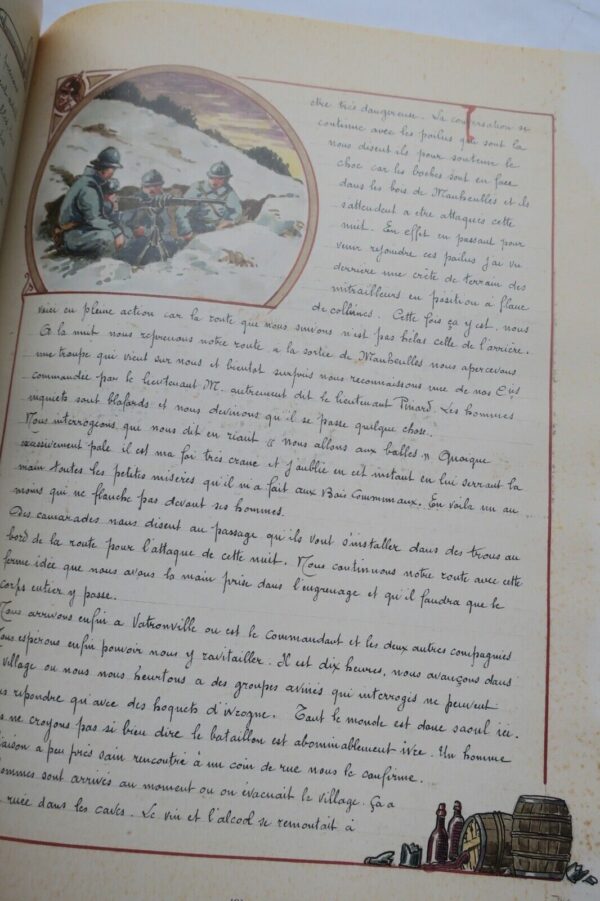 etre très dangereuse. La conversation se
continue avec les poilus que sont la
nous disent ils pour soutenir le
choc car les boches sont en face
dans les bois de Manheulles et ils
s'attendent a etre attaqués cette
nuit. En effet en passant pour
venir rejoindre ces poilus j'ai vu
derriere une crête de terrain des
mitrailleurs en position à flanc
de collines. Cette fois ça y est, nous
voici en pleine action car la route que nous suivons n'est pas hélas celle de l'arrière.
A la nuit nous reprenons notre route. a la sortie de Manheulles nous apercevons
une troupe qui vient sur nous et bientot surpris nous reconnaissons une de nos Cies
commandée par le lieutenant M. autrement dit le lieutenant Pinard. Les hommes
inquiets sont blafards et nous devinons qu'il se passe quelque chose.
Nous interrogeons que nous dit en riant « nous allons aux balles » Quoique
excessivement pale il est ma foi très crane et j'oublie en cet instant en lui serrant la
main toutes les petites misères qu'il m'a fait aux Bois Communaux. En voila un au
moins qui ne flanche pas devant ses hommes.
Des camarades nous disent au passage qu'ils vont s'installer dans des trous au
bord de la route pour l'attaque de cette nuit. Nous continuons notre route avec cette
ferme idée que nous avons la main prise dans l'engrenage et qu'il faudra que le
corps entier y passe.
Nous arrivons enfin a Vatronville ou est le commandant et les deux autres compagnies
Nous espérons enfin pouvoir nous y ravitailler. Il est dix heures, nous avançons dans
village ou nous nous heurtons a des groupes avinés qui interrogés ne peuvent
repondre qu'avec des hoquets d'ivrogne. Tout le monde est donc saoul ici.
ne croyons pas si bien dire le bataillon est abominablement ivre. Un homme
a peu près sain rencontré à un coin de rue nous le confirme.
sont arrivés au moment ou on évacuait le village. Ça a
ruée dans les caves. Le vin et l'alcool se remontait à